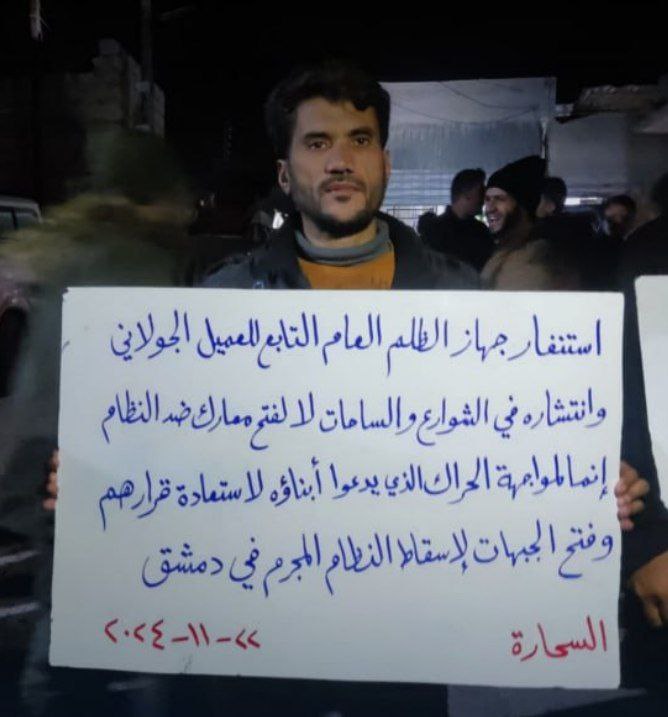 استنفار جهاز الظلم العام التابع للعميل الجولاني
وانتشاره في الشوارع والساحات لا لفتح معارك ضد النظام
إنما لمواجهة الحراك الذي يدعوا أبناؤه لاستعادة قرارهم
وفتح الجبهات لإسقاط النظام المجرم في دمشق
السحارة
٢٢-١١-٢٠٢٤